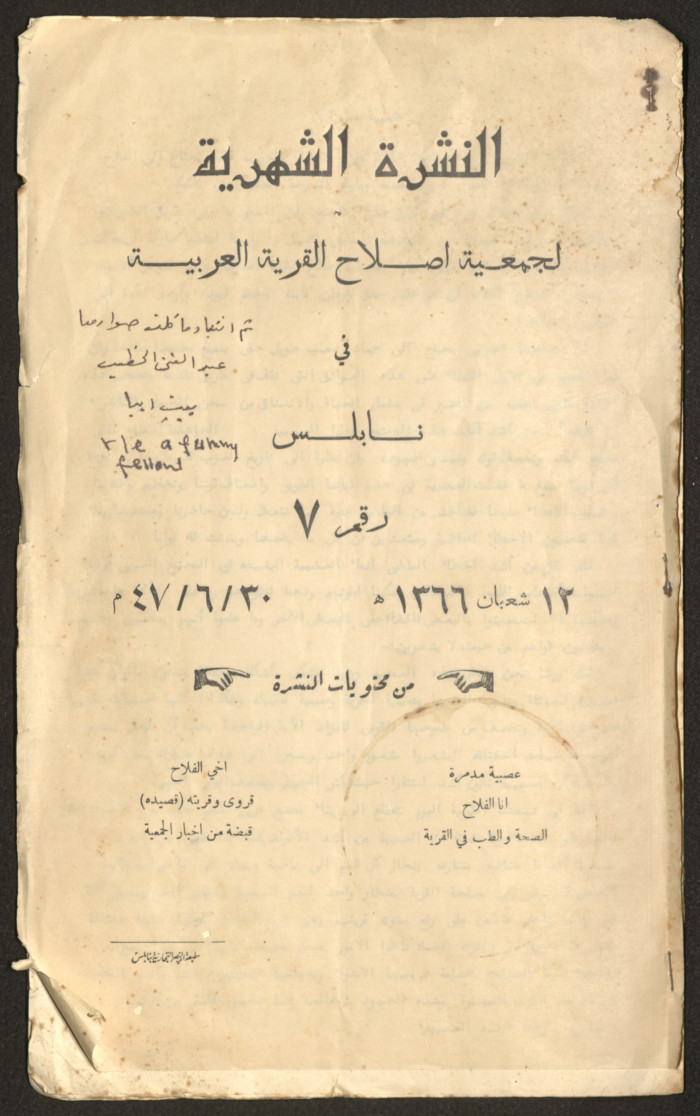 النشرة الشهرية
لجمعية اصلاح القرية العربية
في
نابلس
عبد الغني الخطيب
بيت ايبا
a funny
fellow
رقم ٧
١٢ شعبان ١٣٦٦ ه ٤٧/٦/٣٠ م
من محتويات النشرة
عصبية مدمرة
انا الفلاح
الصحة والطب في القرية
اخي الفلاح
قروى وقريته (قصيده)
قبضة من اخبار الجمعية